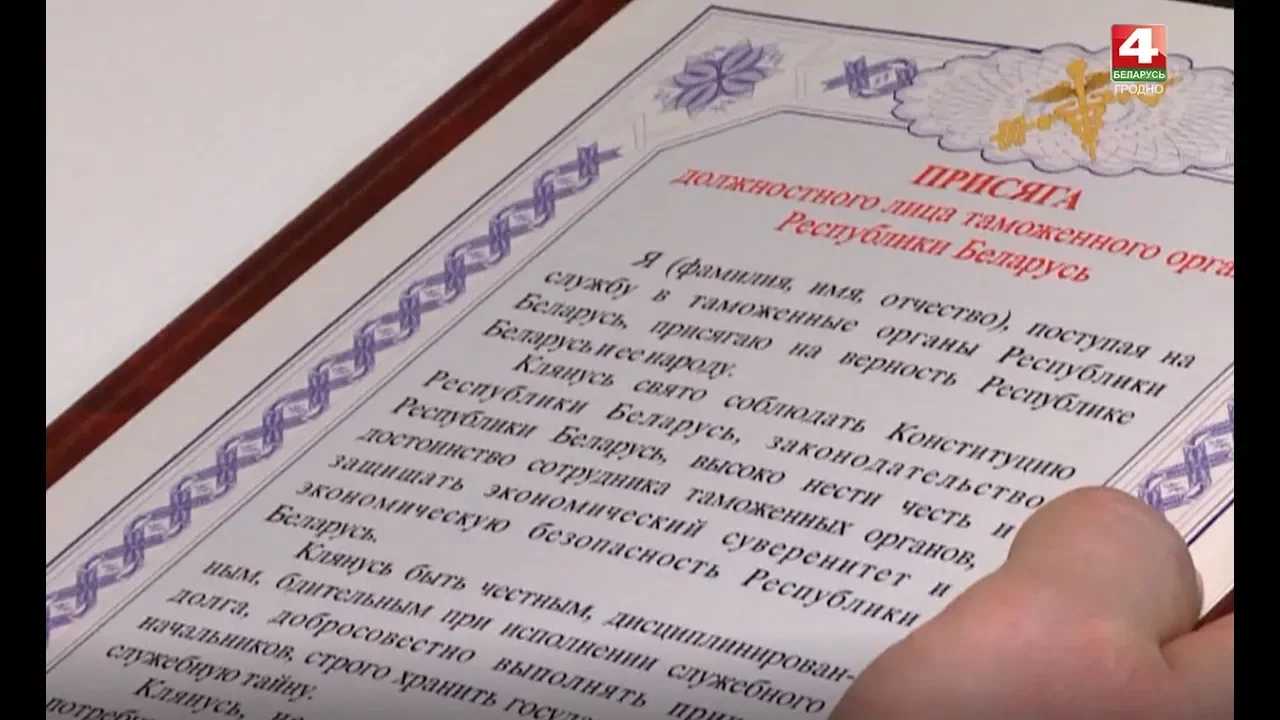 4
БЕЛАРУСЬ
ГРОДНО
ПРИСЯГА
должностного лица таможенного
Республики Беларусь
Я (фамилия, имя, отчество), поступая на
службу в таможенные органы Республики
Беларусь, присягаю на верность Республике
Беларусь и ее народу.
Клянусь свято соблюдать Конституцию
Республики Беларусь, законодательство
Республики Беларусь, высоко нести честь и
достоинство сотрудника таможенных органов,
защищать экономический суверенитет и
экономическую безопасность Республики
Беларусь.
Клянусь быть честным, дисциплинирован-
ным, бдительным при исполнении служебного
долга, добросовестно выполнять
начальников, строго хранить
служебную тайну.
Клянусь,